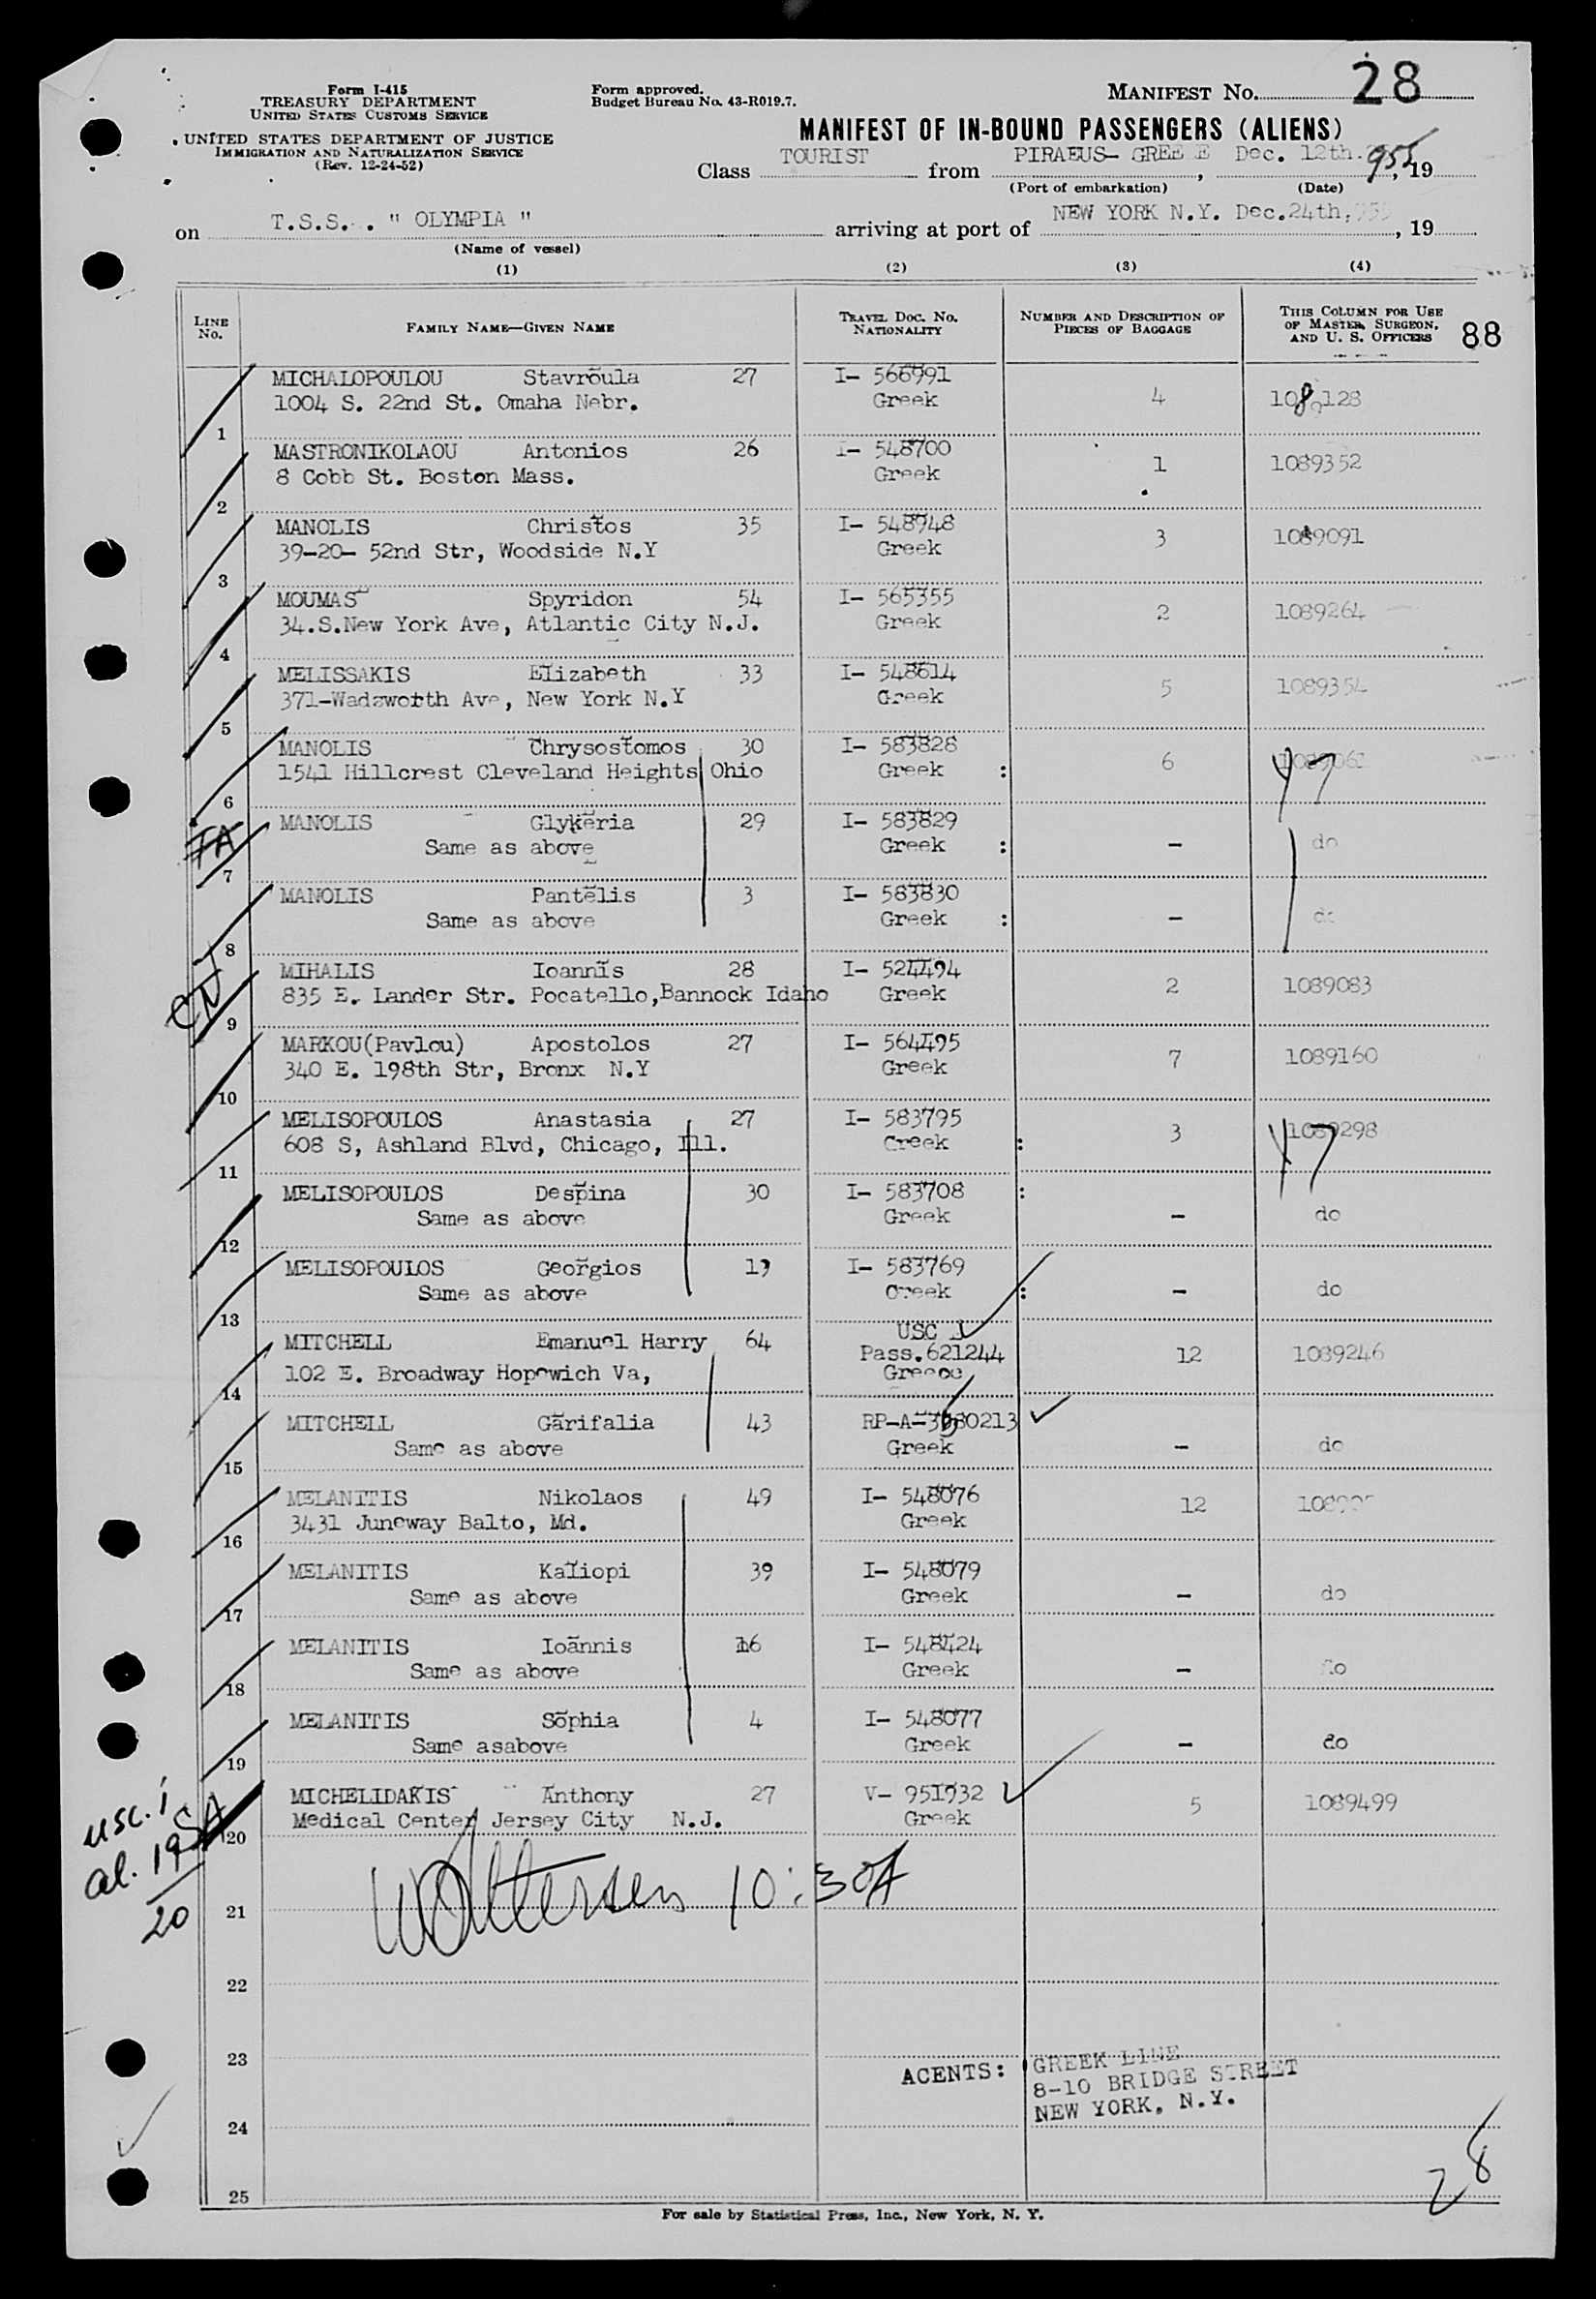 Form I-415
TREASURY DEPARTMENT
UNITED STATES CUSTOMS SERVICE
UNITED STATES DEPARTMENT OF JUSTICE
IMMIGRATION AND NATURALIZATION SERVICE
(Rev. 12-24-52)
Form approved.
Budget Bureau No. 43-R019.7.
MANIFEST No. 28
MANIFEST OF IN-BOUND PASSENGERS (ALIENS)
Class TOURIST from PIRAEUS- GREE E, Dec. 12th. 955, 19
(Port of embarkation) (Date)
on T.S.S. . " OLYMPIA " arriving at port of NEW YORK N.Y. Dec.24th, , 19
(Name of vessel)
(1) (2) (3) (4)
LINE No. FAMILY NAME—GIVEN NAME TRAVEL DOC. No. NATIONALITY NUMBER AND DESCRIPTION OF PIECES OF BAGGAGE THIS COLUMN FOR USE OF MASTER, SURGEON, AND U. S. OFFICERS 88
MICHALOPOULOU Stavroula 27 I- 566991
1004 S. 22nd St. Omaha Nebr. Greek 4
1
MASTRONIKOLAOU Antonios 26 I- 548700
8 Cobb St. Boston Mass. Greek 1 1089352
2
MANOLIS Christos 35 I- 548948
39-20- 52nd Str, Woodside N.Y Greek 3 1089091
3
MOUMAS Spyridon 54 I- 565355
34.S.New York Ave, Atlantic City N.J. Greek 2 1089264
4
MELISSAKIS Elizabeth 33 I- 548614
371-Wadsworth Ave, New York N.Y Greek 5 1089354
5
MANOLIS Chrysostomos 30 I- 583828
1541 Hillcrest Cleveland Heights Ohio Greek : 6 Y7
6
FA MANOLIS Glykeria 29 I- 583829
Same as above Greek : - do
7
MANOLIS Pantelis 3 I- 583830
Same as above Greek : - do
8
CN MIHALIS Ioannis 28 I- 524494
835 E. Lander Str. Pocatello,Bannock Idaho Greek 2 1089083
9
MARKOU(Pavlou) Apostolos 27 I- 564495
340 E. 198th Str, Bronx N.Y Greek 7 1089160
10
MELISOPOULOS Anastasia 27 I- 583795
608 S, Ashland Blvd, Chicago, Ill. Greek : 3 1089298 Y7
11
MELISOPOULOS Despina 30 I- 583708 :
Same as above Greek - do
12
MELISOPOULOS Georgios I- 583769
Same as above Greek : - do
13
MITCHELL Emanuel Harry 64 USC
Pass.621244
102 E. Broadway Hopewich Va, Greece 12 1089246
14
MITCHELL Garifalia 43 RP-A-
Same as above Greek - do
15
MELANITIS Nikolaos 49 I- 548076
3431 Juneway Balto, Md. Greek 12
16
MELANITIS Kaliopi 39 I- 548079
Same as above Greek - do
17
MELANITIS Ioannis 16 I- 548424
Same as above Greek - do
18
MELANITIS Sophia 4 I- 548077
Same asabove Greek - do
19
MICHELIDAKIS Anthony 27 V- 951932
Medical Center Jersey City N.J. Greek 5 1089499
20
usc. 1
al. 19
20
SA
10:30A
21
22
23
ACENTS: GREEK LINE
8-10 BRIDGE STREET
NEW YORK, N.Y.
24
25
28
For sale by Statistical Press, Inc., New York, N. Y.